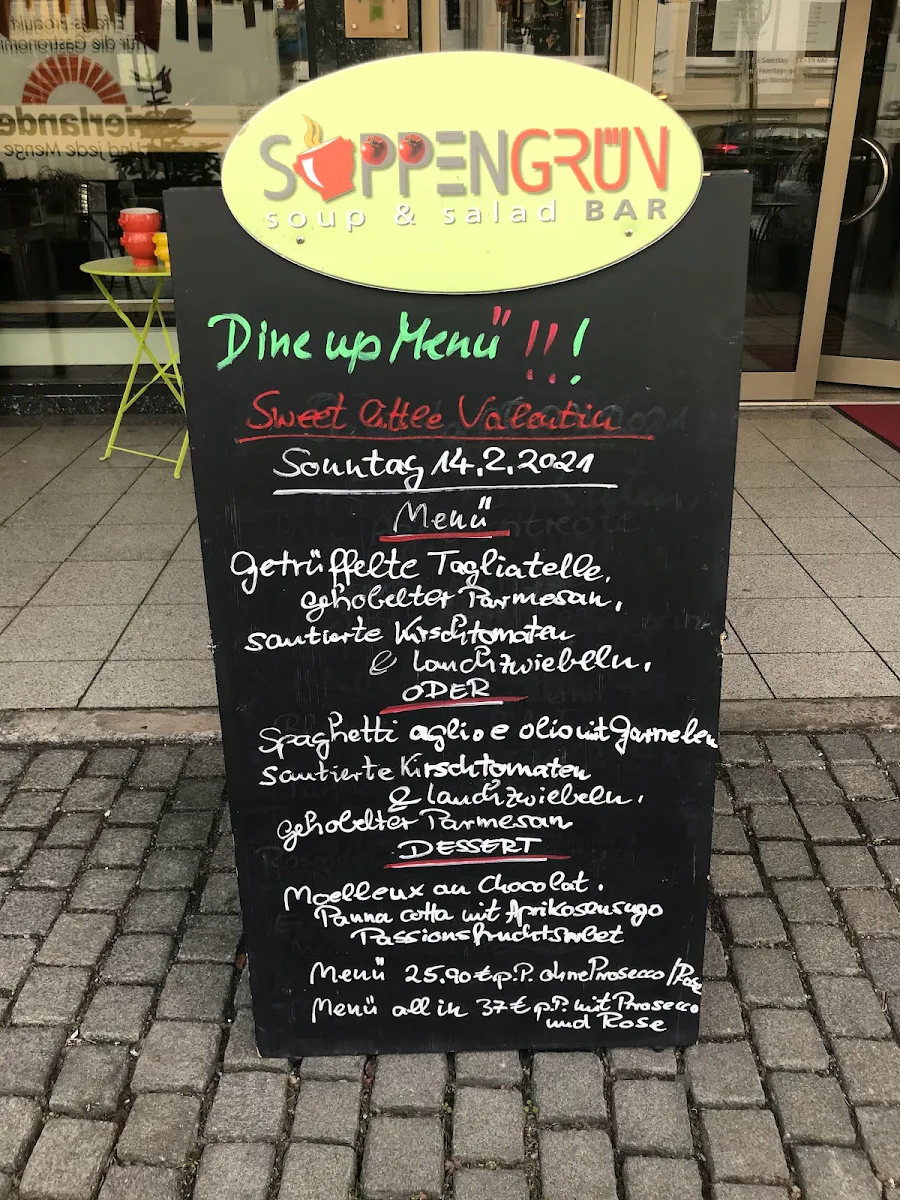 SUPPENGRÜN
soup & salad BAR
Dine up Menü !!!
Sweet little Valentin
Sonntag 14.2.2021
Menü
Getrüffelte Tagliatelle,
gehobelter Parmesan,
sautierte Kirschtomaten
& lauchzwiebeln.
ODER
Spaghetti aglio e olio mit Garnelen
sautierte Kirschtomaten
& lauchzwiebeln.
gehobelter Parmesan
DESSERT
Moelleux au Chocolat.
Panna cotta mit Aprikosensugo
Passionsfruchtsorbet
Menü 25.90 € p.P. ohne Prosecco /
Menü all in 37 € p.P. mit Prosecco
und Rose